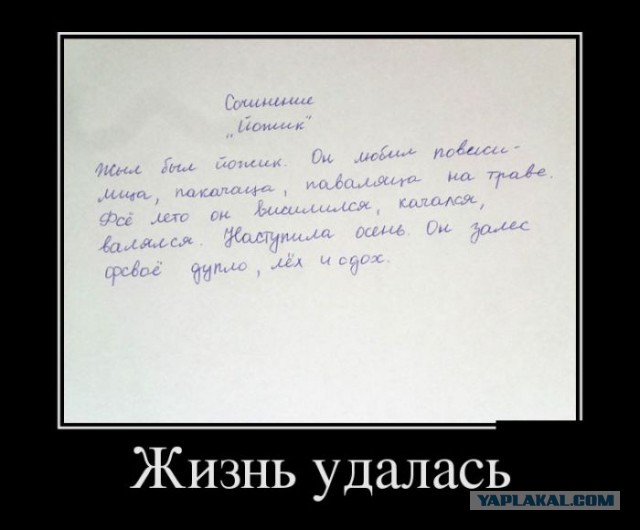 Сочинение
„Йожик"
Жыл был йожик. Он любил повесили-
лица, пакачаца, паваляца на траве.
Фсё лето он висилился, качался,
валялся. Наступила осень. Он залес
фсваё дупло, лёх и сдох.
Жизнь удалась
YAPLAKAL.COM